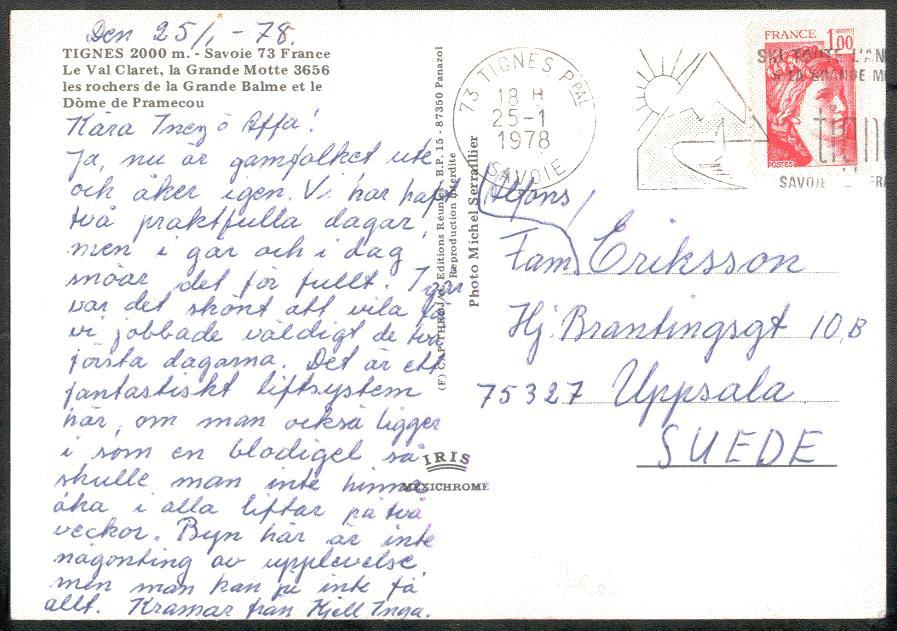 Den 25/1 - 78.
TIGNES 2000 m. - Savoie 73 France
Le Val Claret, la Grande Motte 3656
les rochers de la Grande Balme et le
Dôme de Pramecou
Kära Inez o Affa!
Ja, nu är gamfolket ute
och åker igen. Vi har haft
två praktfulla dagar,
men i går och i dag
snöar det för fullt. I går
var det skönt att vila för
vi jobbade väldigt de två
första dagarna. Det är ett
fantastiskt liftsystem
här, om man också ligger
i som en blodigel så
skulle man inte hinna
åka i alla liftar på två
veckor. Byn här är inte
någonting av upplevelse
men man kan ju inte få
allt. Kramar från Kjell Inga.
(F) CAP-THEOJAC Editions Réunies - B.P. 15 - 87350 Panazol
Reproduction interdite
Photo Michel Serraillier
IRIS
MEXICHROME
73 TIGNES PPAL
18 H
25-1
1978
SAVOIE
FRANCE 1,00
POSTES
SKI TOUTE L'AN
A LA GRANDE M
SAVOIE FRA
Alfons,
Fam Eriksson
Hj. Brantingsgt 10 B
75327 Uppsala
SUEDE